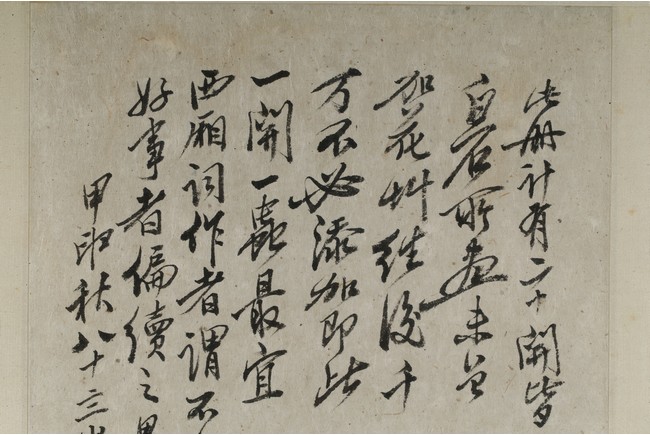 此册計有二十開皆
白石所畫未曾
加花艸往後千
万不必添加即此
一開一蟲最宜
西厢詞作者謂不
好事者偏續之
甲申秋八十三